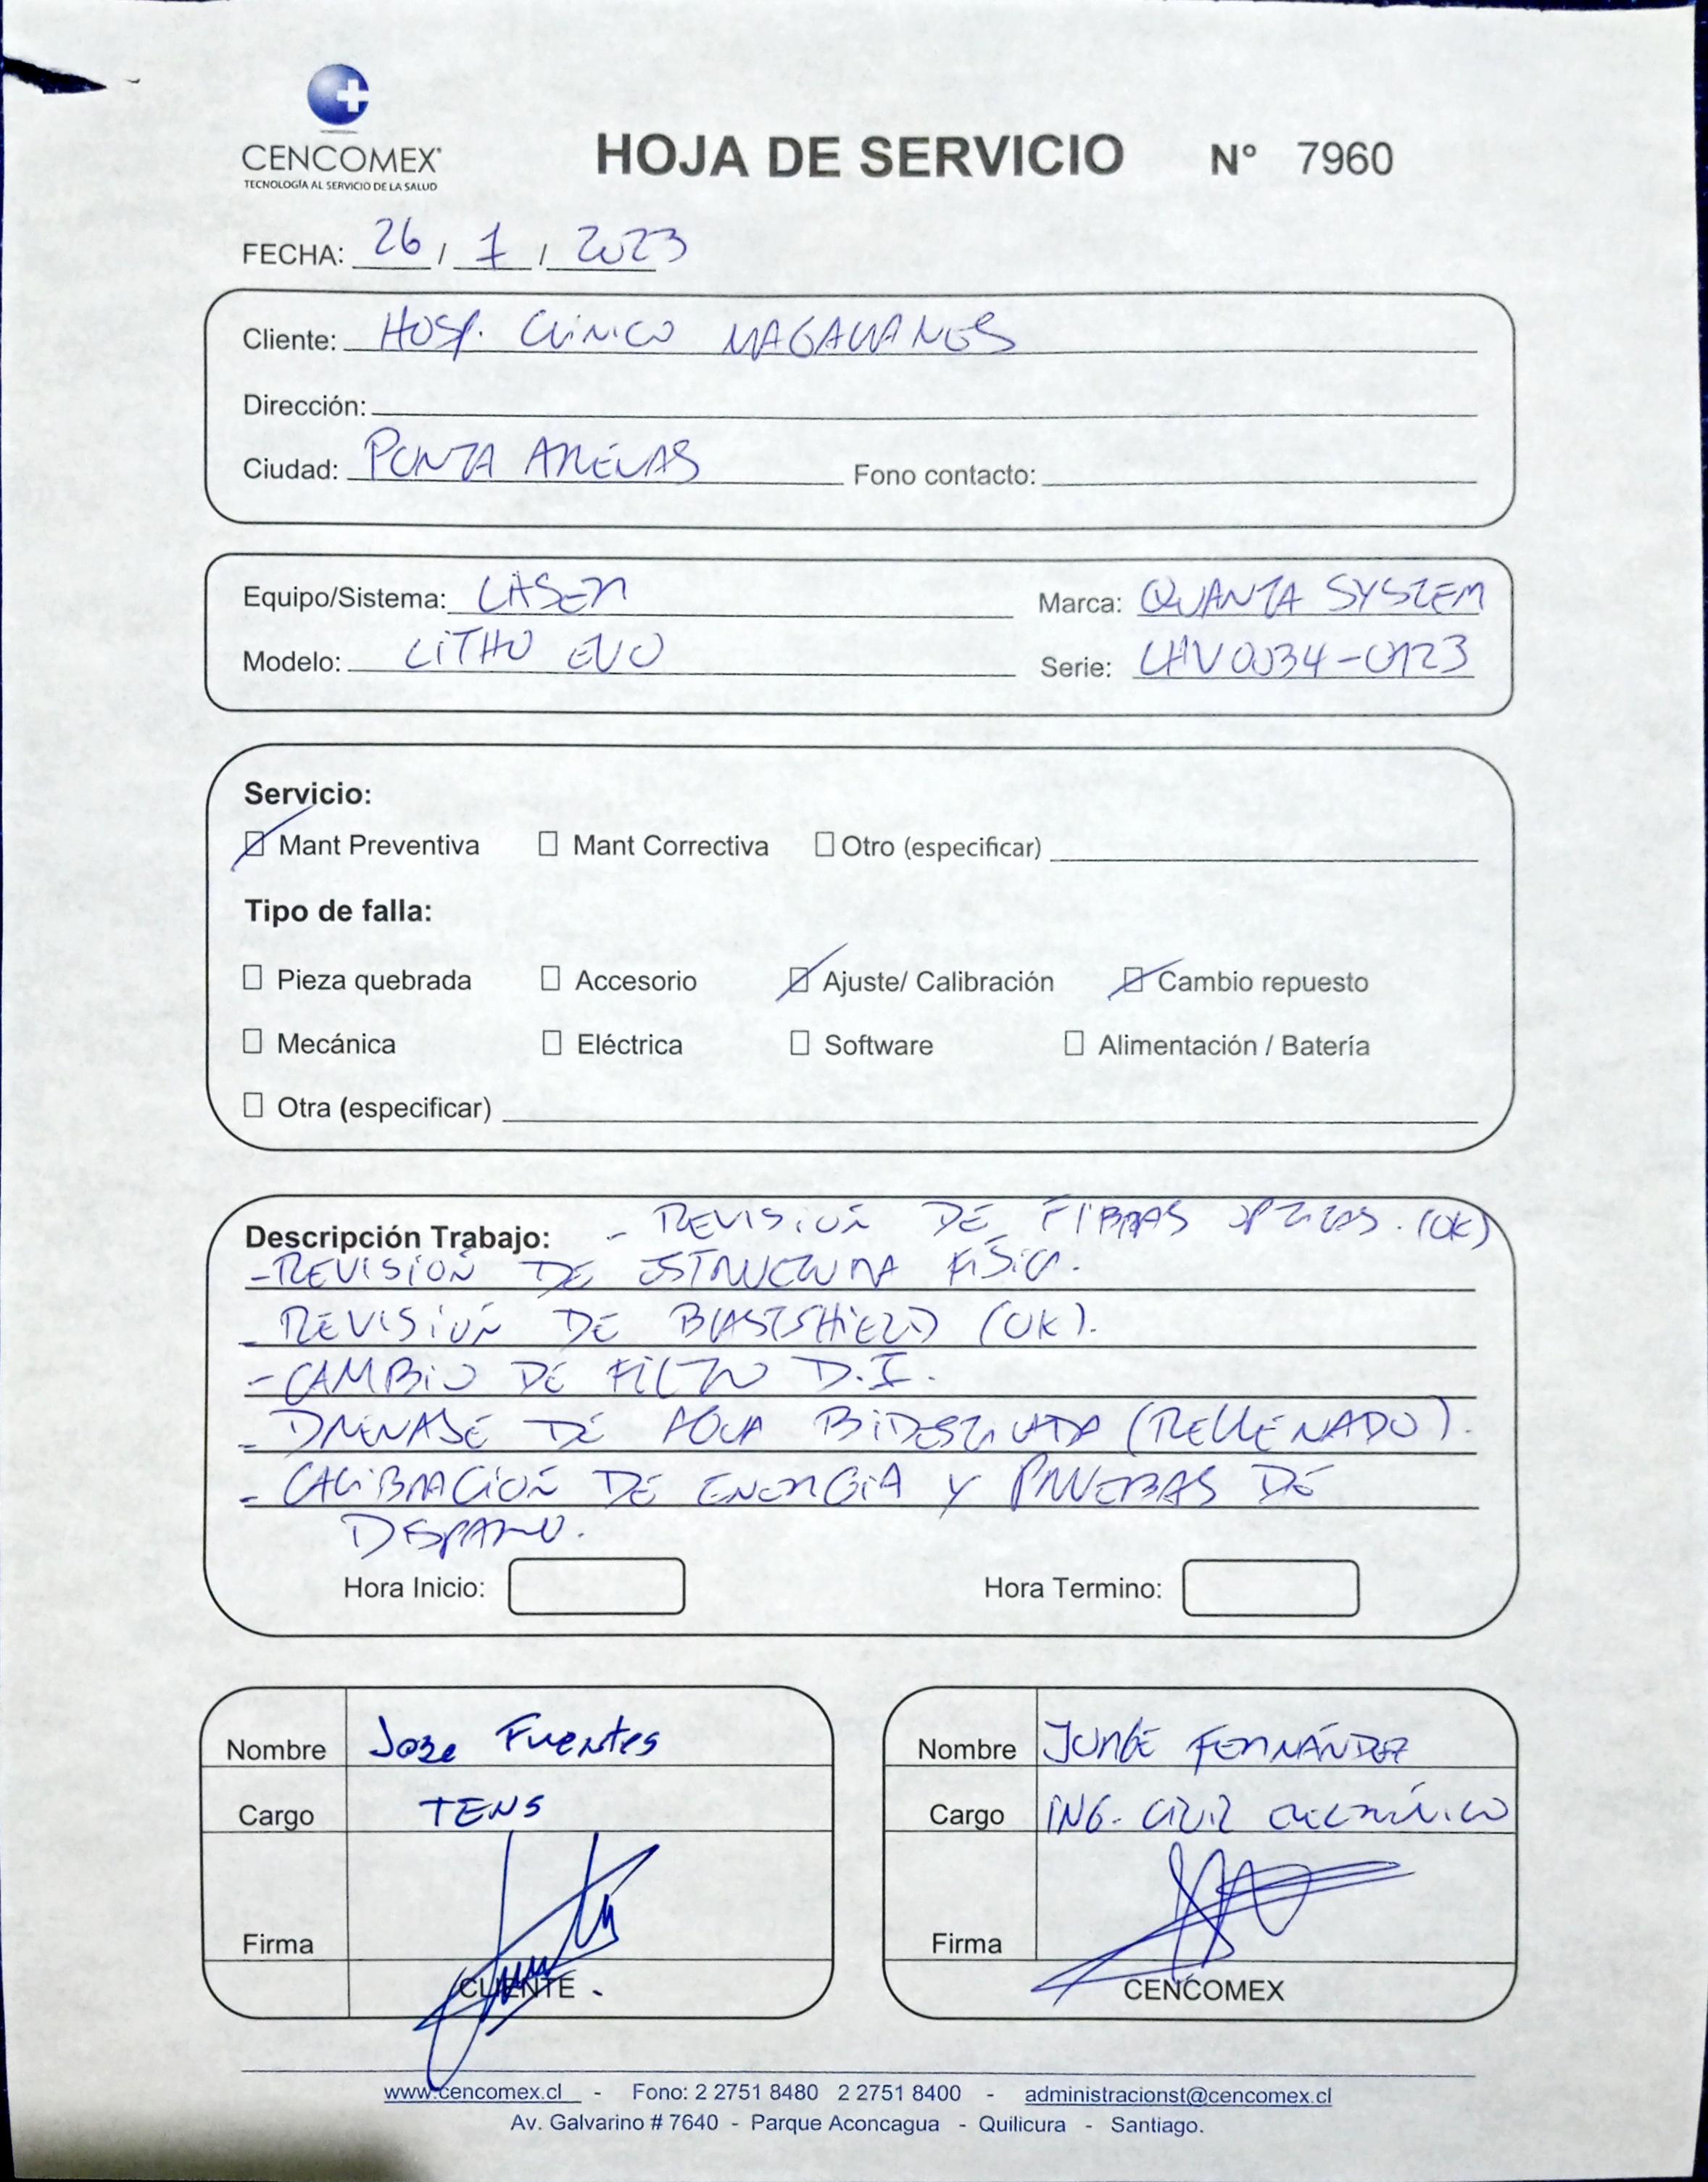 CENCOMEX
TECNOLOGÍA AL SERVICIO DE LA SALUD
HOJA DE SERVICIO N° 7960
FECHA: 26 / 1 / 2023
Cliente: HOSP. CLINICO MAGALLANES
Dirección:
Ciudad: PUNTA ARENAS Fono contacto:
Equipo/Sistema: LASER Marca: QUANTA SYSTEM
Modelo: LITHO EVO Serie: LHV0034-0123
Servicio:
Mant Preventiva Mant Correctiva Otro (especificar)
Tipo de falla:
Pieza quebrada Accesorio Ajuste/ Calibración Cambio repuesto
Mecánica Eléctrica Software Alimentación / Batería
Otra (especificar)
Descripción Trabajo: - REVISIÓN DE FIBRAS OPTICAS. (OK)
- REVISIÓN DE ESTRUCTURA FÍSICA.
- REVISIÓN DE BLASTSHIELD (OK).
- CAMBIO DE FILTRO D.I.
- DRENAJE DE AGUA BIDESTILADA (RELLENADO).
- CALIBRACIÓN DE ENERGÍA Y PRUEBAS DE
DISPARO.
Hora Inicio: Hora Termino:
Nombre Jose Fuentes
Cargo TENS
Firma
CLIENTE
Nombre JORGE FERNÁNDEZ
Cargo ING. CIVIL ELECTRÓNICO
Firma
CENCOMEX
www.cencomex.cl - Fono: 2 2751 8480 2 2751 8400 - administracionst@cencomex.cl
Av. Galvarino # 7640 - Parque Aconcagua - Quilicura - Santiago.